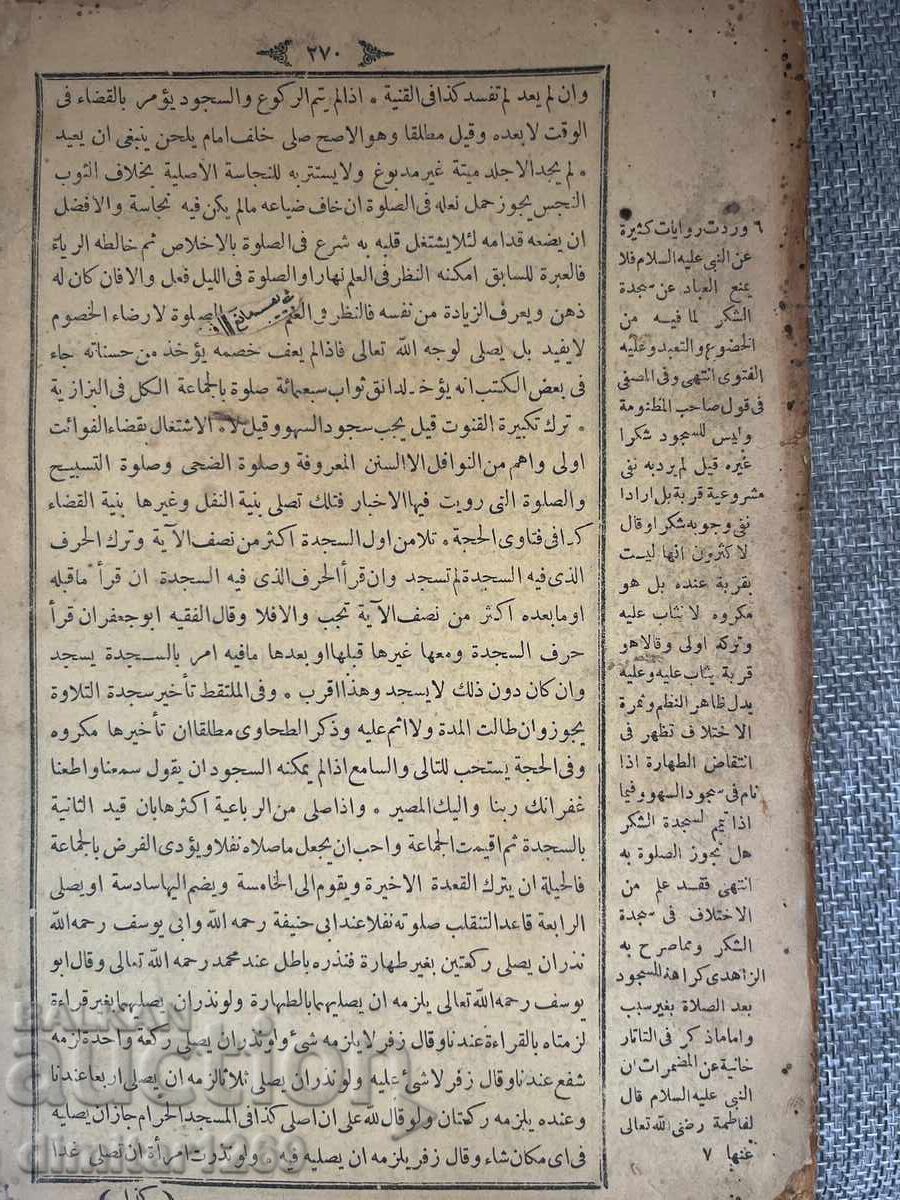 ٢٧٠
وان لم يعد لم تفسد كذا فى القنية ٠ اذا لم يتم الركوع والسجود يؤمر بالقضاء فى
الوقت لا بعده وقيل مطلقا وهو الاصح صلى خلف امام يلحن ينبغى ان يعيد
٠ لم يجد الا جلد ميتة غير مدبوغ ولا يستتر به للنجاسة الاصلية بخلاف الثوب
النجس يجوز حمل نعله فى الصلوة ان خاف ضياعه مالم يكن فيه نجاسة والافضل
ان يضعه قدامه لئلا يشتغل قلبه به شرع فى الصلوة بالاخلاص ثم خالطه الرياء
فالعبرة للسابق امكنه النظر فى العلم نهارا والصلوة فى الليل فعل والا فان كان له
ذهن ويعرف الزيادة من نفسه فالنظر فى العلم الصلوة لارضاء الخصوم
لا يفيد بل يصلى لوجه الله تعالى فاذا لم يعف خصمه يؤخذ من حسناته جاء
فى بعض الكتب انه يؤخـذ لدانق ثواب سبعمائة صلوة بالجماعة الكل فى البزازية
٠ ترك تكبيرة القنوت قيل يجب سجود السهو وقيل لا ٠ الاشتغال بقضاء الفوائت
اولى واهم من النوافل الا السنن المعروفة وصلوة الضحى وصلوة التسبيح
والصلوة التى رويت فيها الاخبار فتلك تصلى بنية النفل وغيرها بنية القضاء
كذا فى فتاوى الحجة ٠ تلا من اول السجدة اكثر من نصف الآية وترك الحرف
الذى فيه السجدة لم تسجد وان قرأ الحرف الذى فيه السجدة ان قرأ ما قبله
او ما بعده اكثر من نصف الآية تجب والا فلا وقال الفقيه ابو جعفر ان قرأ
حرف السجدة ومعها غيرها قبلها او بعدها ما فيه امر بالسـجدة يسجد
وان كان دون ذلك لا يسجد وهذا اقرب ٠ وفى الملتقط تأخير سجدة التلاوة
يجوز وان طالت المدة ولا اثم عليه وذكر الطحاوى مطلقا ان تأخيرها مكروه
وفى الحجة يستحب للتالى والسامع اذا لم يمكنه السجود ان يقول سمعنا واطعنا
غفرانك ربنا واليك المصير ٠ واذا صلى من الرباعية اكثرها بان قيد الثانية
بالسجدة ثم اقيمت الجماعة واحب ان يجعل ما صلاه نفلا ويؤدى الفرض بالجماعة
فالحيلة ان يترك القعدة الاخيرة ويقوم الى الخامسة ويضم اليها سادسة او يصلى
الرابعة قاعدا لتنقلب صلوته نفلا عند ابى حنيفة رحمه الله وابى يوسف رحمه الله
نذر ان يصلى ركعتين بغير طهارة فنذره باطل عند محمد رحمه الله تعالى وقال ابو
يوسف رحمه الله تعالى يلزمه ان يصليهما بالطهارة ولو نذر ان يصليهما بغير قراءة
لزمتاه بالقراءة عندنا وقال زفر لا يلزمه شئ ولو نذر ان يصلى ركعة واحدة لزمه
شفع عندنا وقال زفر لا شئ عليه ولو نذر ان يصلى ثلاثا لزمه ان يصلى اربعا عندنا
وعنده يلزمه ركعتان ولو قال لله على ان اصلى كذا فى المسجد الحرام جاز ان يصليه
فى اى مكان شاء وقال زفر يلزمه ان يصليه فيه ٠ ولو نذرت امرأة ان تصلى غدا
٦ وردت روايات كثيرة
عن النبى عليه السلام فلا
يمنع العباد عن سجدة
الشكر لما فيه من
الخضوع والتعبد وعليه
الفتوى انتهى وفى المصفى
فى قول صاحب المنظومة
وليس للسجود شكرا
غيره قيل لم يرد به نفى
مشروعية قربة بل ارادا
نفى وجوبه شكرا وقال
لاكثرون انها ليست
بقربة عنده بل هو
مكروه لا نثاب عليه
وتركه اولى وقالا هو
قربة يثاب عليه وعليه
يدل ظاهر النظم وثمرة
الاختلاف تظهر فى
انتقاض الطهارة اذا
نام فى سجود السهو وفيما
اذا تيم لسجدة الشكر
هل تجوز الصلوة به
انتهى فقد علم من
الاختلاف فى سجدة
الشكر وما صرح به
الزاهدى كراهة السجود
بعد الصلاة بغير سبب
واما ما ذكر فى التاتار
خانية عن المضمرات ان
النبى عليه السلام قال
لفاطمة رضى الله تعالى
عنها ٧
BALKAN
auction
dimitar1269